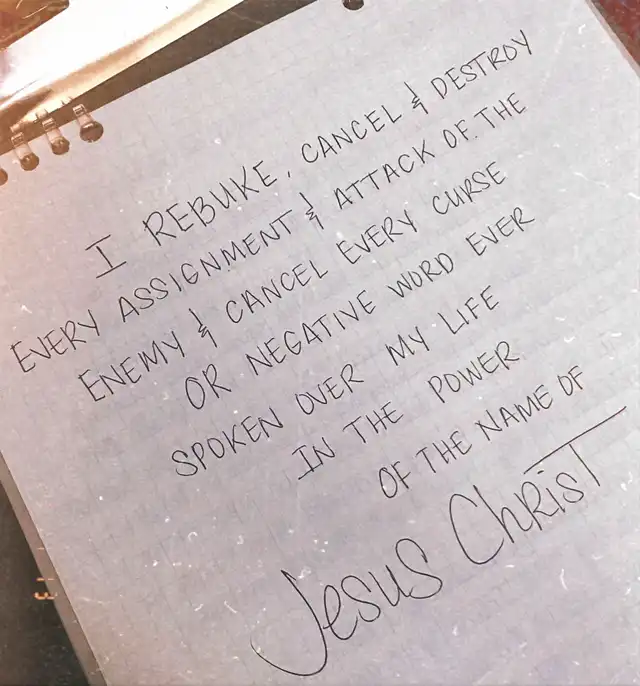 I REBUKE, CANCEL & DESTROY
EVERY ASSIGNMENT & ATTACK OF THE
ENEMY & CANCEL EVERY CURSE
OR NEGATIVE WORD EVER
SPOKEN OVER MY LIFE
IN THE POWER
OF THE NAME OF
Jesus Christ